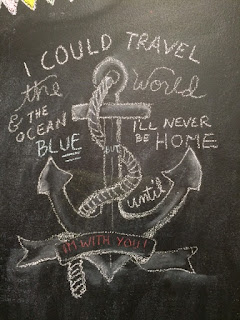 I COULD TRAVEL
the World
& THE OCEAN BLUE
BUT I'LL NEVER BE HOME
until
I'M WITH YOU!